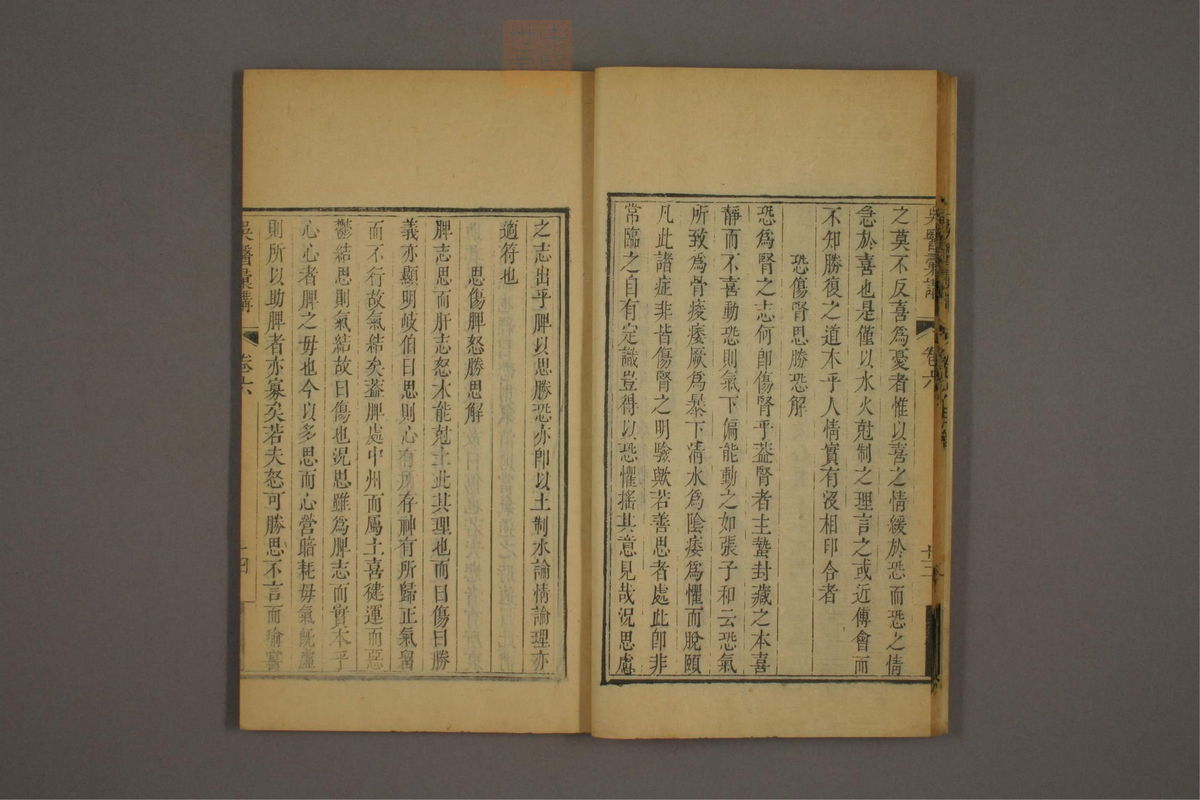 吳醫彙講
卷六
之莫不反喜爲憂者惟以喜之情緩於恐而恐之情
急於喜也是僅以水火尅制之理言之或近傅會而
不知勝復之道本乎人情實有沒相印合者
恐傷腎思勝恐解
恐爲腎之志何卽傷腎乎葢腎者主蟄封藏之本喜
靜而不喜動恐則氣下偏能動之如張子和云恐氣
所致爲骨痠痿厥爲暴下清水爲陰痿爲懼而脫頤
凡此諸症非皆傷腎之明驗歟若善思者處此卽非
常臨之自有定識豈得以恐懼搖其意見哉況思慮
之志出乎脾以思勝恐亦卽以土制水論情論理亦
適符也
思傷脾怒勝思解
脾志思而肝志怒木能尅土此其理也而曰傷曰勝
義亦顯明岐伯曰思則心有所存神有所歸正氣畱
而不行故氣結矣葢脾處中州而屬土喜健運而惡
鬱結思則氣結故曰傷也況思雖爲脾志而實本乎
心心者脾之母也今以多思而心營暗耗母氣旣虛
則所以助脾者亦寡矣若夫怒可勝思不言而喻
吳醫彙講
卷六
十四